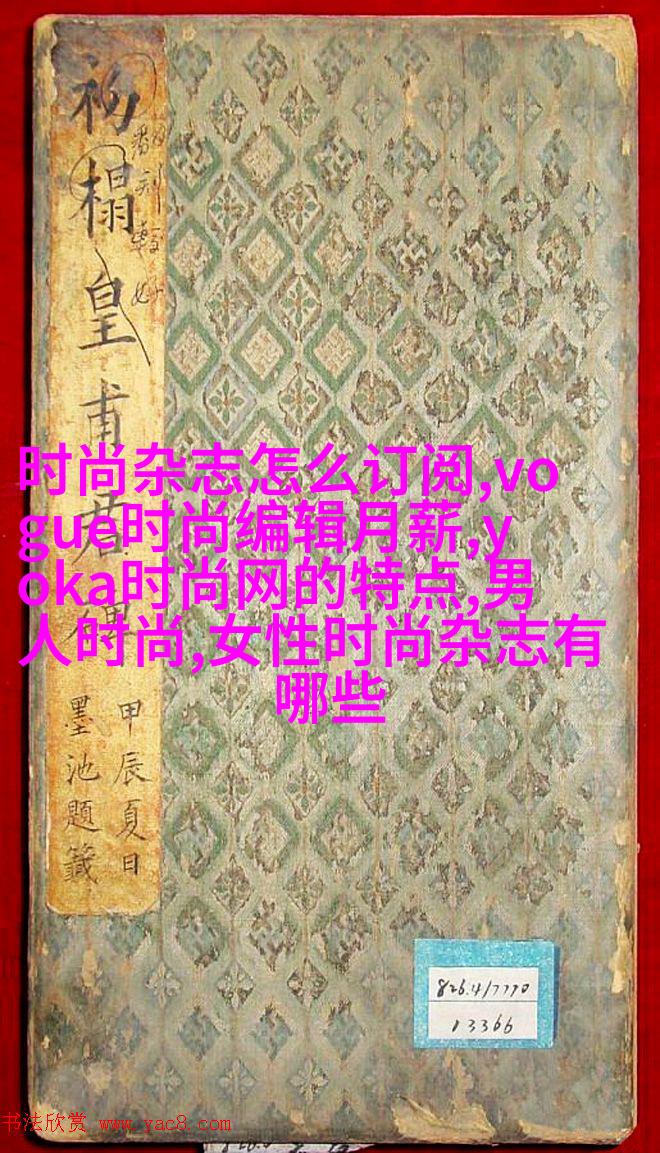 初榻皇甫君碑
甲辰夏日
墨池題籤
时尚杂志怎么订阅,vo
gue时尚编辑月薪,y
oka时尚网的特点,男
人时尚,女性时尚杂志有
哪些
826.4/7770
13366
书法欣赏 www.yac8.com